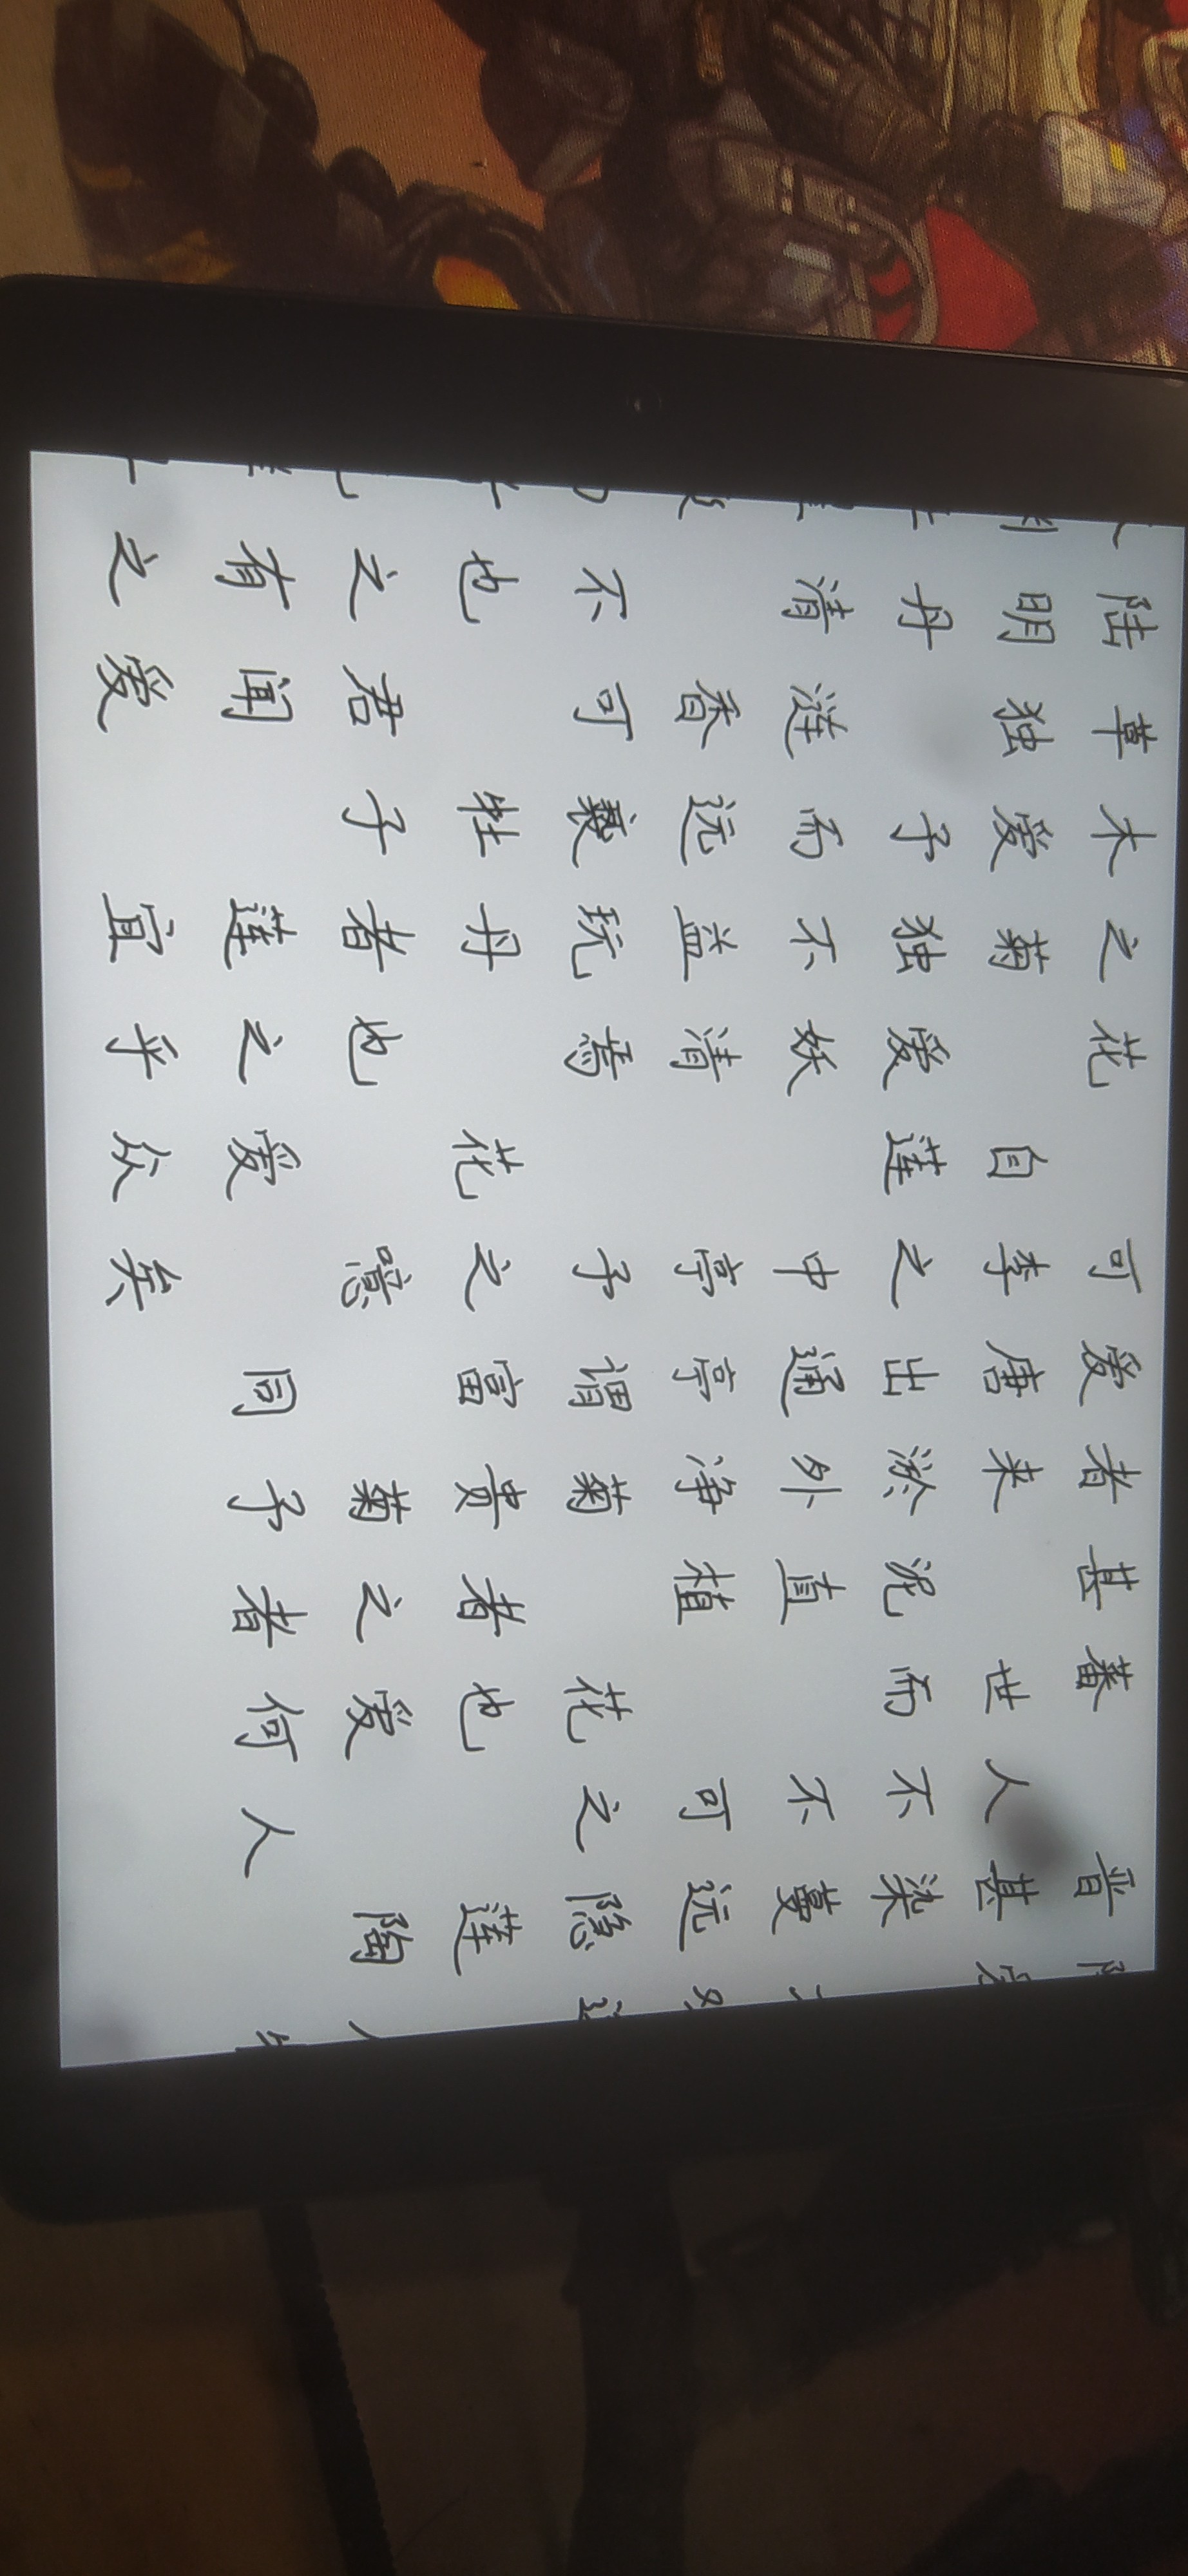 陆草木之花 可爱者甚蕃 晋
明独爱菊 自李唐来 世人甚爱
丹 予独爱莲之出淤泥而不染
清涟而不妖 中通外直 不蔓
香远益清 亭亭净植 可远
不可亵玩焉 予谓菊 花之隐
也 牡丹 花之富贵者也 莲
之君子者也 噫 菊之爱 陶
有闻 莲之爱 同予者何人
之爱 宜乎众矣